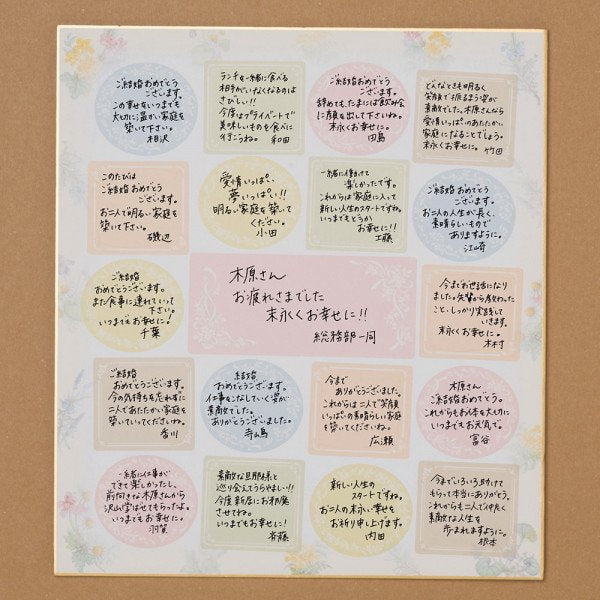 ご結婚おめでとう
ございます。
この幸せをいつまでも
大切に温かい家庭を
築いて下さい。
相沢
ランチを一緒に食べる
相手がいなくなるのは
さびしい!!
今度はプライベートで
美味しいものを食べに
行こうね。 和田
ご結婚おめでとう
ございます。
辞めても、たまには飲み会
に顔を出して下さいね。
末永くお幸せに。
田島
どんなときも明るく
笑顔で振るまう姿が
素敵でした。木原さんなら
愛情いっぱいのあたたかい
家庭になることでしょう。
末永くお幸せに。 竹田
このたびは
ご結婚おめでとう
ございます。
お二人で明るい家庭を
築いて下さい。
磯辺
愛情いっぱい、
夢いっぱい!!
明るい家庭を築いて
ください。
小田
一緒に働けて
楽しかったです。
これからは家庭に入って
新しい人生のスタートですね。
いつまでもどうか
お幸せに!!
工藤
ご結婚おめでとう
ございます。
お二人の人生が長く、
素晴らしいもので
ありますように。
江崎
ご結婚
おめでとうございます。
また食事に連れていって
下さい。
いつまでもお幸せに!
千葉
木原さん
お疲れさまでした
末永くお幸せに!!
総務部一同
今までお世話になり
ました。先輩から教わった
こと、しっかり実践して
いきます。
末永くお幸せに。
木村
ご結婚
おめでとうございます。
今の気持ちを忘れずに
二人であたたかい家庭を
築いていってくださいね。
香川
ご結婚
おめでとうございます。
仕事をこなしていく姿が
素敵でした。
ありがとうございました。
寺島
今まで
ありがとうございました。
これからは二人で笑顔
いっぱいの素晴らしい家庭
を築いてくださいね。
広瀬
木原さん
ご結婚おめでとう。
これからもお体を大切に
いつまでもお元気で。
富谷
一緒に仕事が
できて楽しかったし、
前向きな木原さんから
沢山学ばせてもらったよ。
いつまでもお幸せに。
羽賀
素敵な旦那様と
巡り会えてうらやましい!!
今度新居にお邪魔
させてね。
いつまでもお幸せに!
斉藤
新しい人生の
スタートですね。
お二人の末永い幸せを
お祈り申し上げます。
内田
今までいろいろ助けて
もらって本当にありがとう。
これからも二人で仲良く
素敵な人生を
歩まれますように。
根本